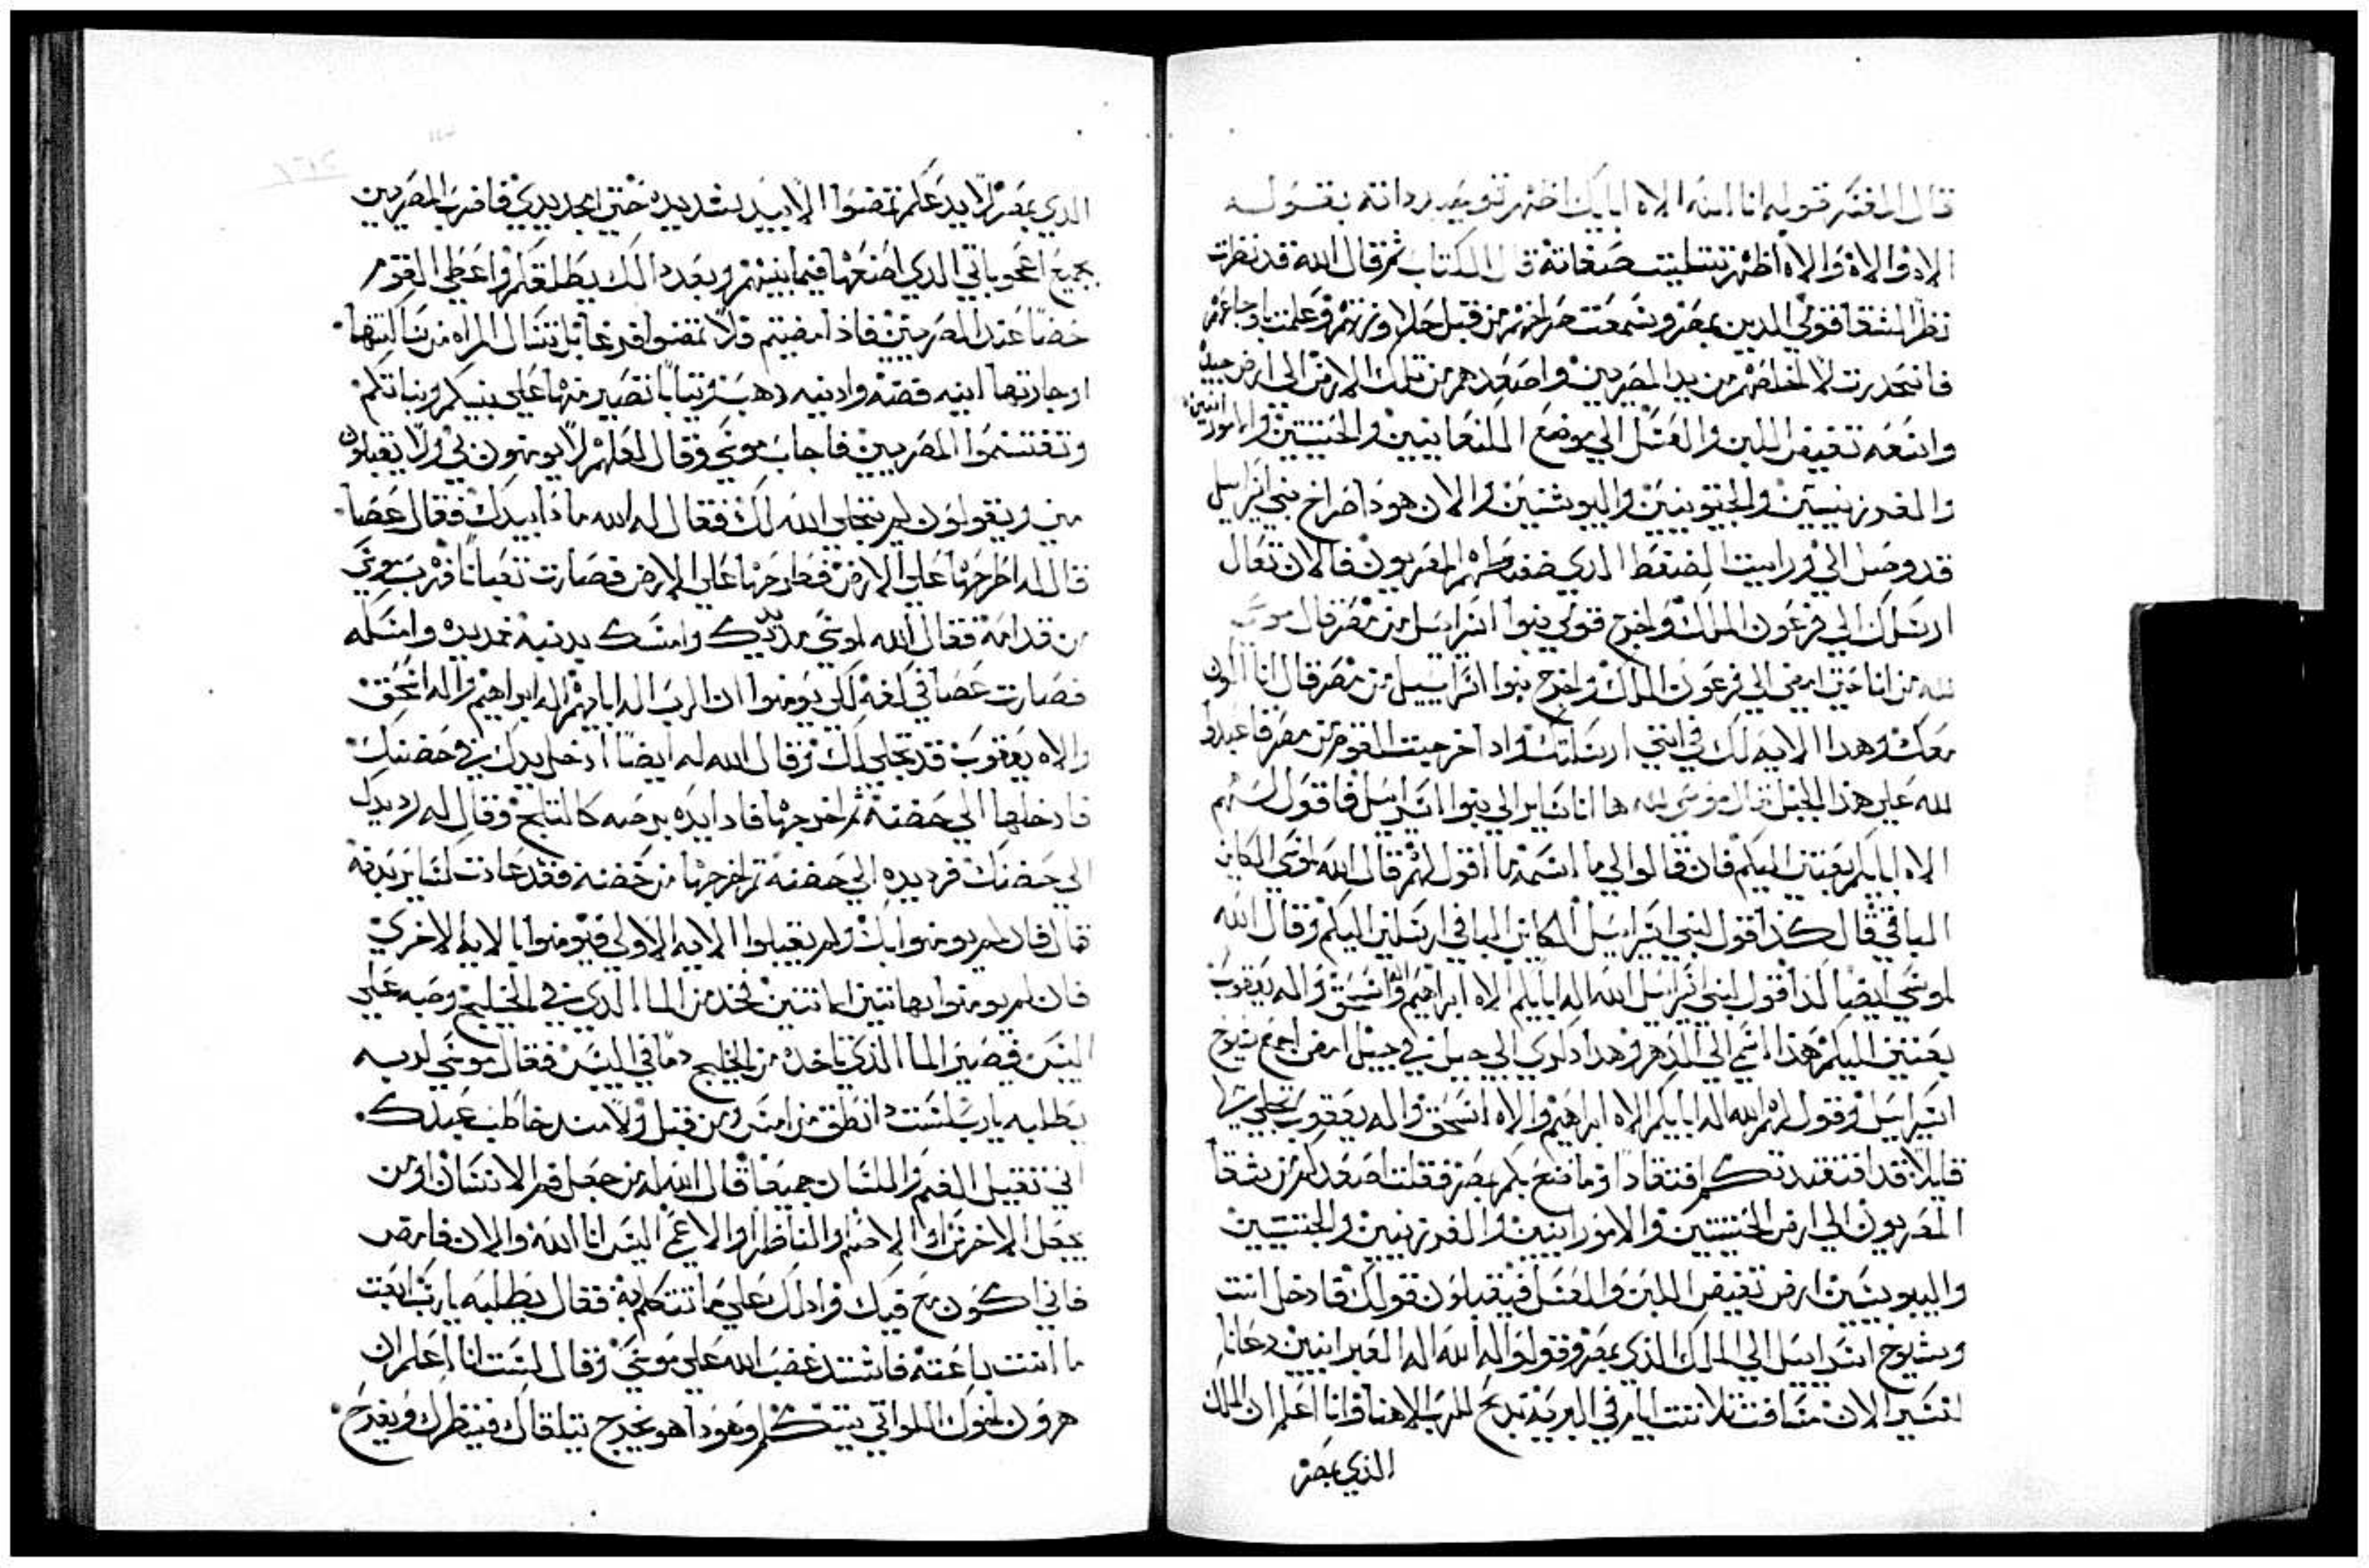 قال المفسر قوله انا الله الاه ابايك اظهر توحيد ذاته بقوله
الاه والاه والاه اظهر تتليت صفاته قال الكتاب ثم قال الله قد نظرت
نظر الشقا قومي الدين بمصر وسمعت صراخهم من قبل وعلمت باوجاعهم
فانحدرت لاخلصهم من يد المصريين واصعدهم من تلك الارض الى ارض جيده
واسعه تفيض اللبن والعسل الي موضع الكنعانيين والحيتيين والامورانيين
والفرزيسيين والحيويين واليبوسيين والان هودا صراخ بني اسراييل
قد وصل الي ورايت الضغط الدي ضغطهم المصريون فالان تعال
ارسلك الي فرعون الملك واخرج قومي بنوا اسراييل من مصر قال موسى
لله من انا حتى امضي الي فرعون الملك واخرج بنوا اسراييل من مصر قال انا اكون
معك وهدا الايه لك في انني ارسلتك وادا اخرجت القوم من مصر فاعبدوا
لله علي هذا الجبل قال موسى لله ها انا ساير الي بنوا اسراييل فاقول لهم
الاه ابايكم بعتني اليكم فان قالوا لي ما اسمه ما اقول لهم قال الله لموسى الكاين
الباقي قال كذا قول لبني اسراييل الكاين الباقي ارسلني اليكم وقال الله
لموسى ايضا كذا قول لبني اسراييل الله اله ابايكم الاه ابراهيم واله اسحق واله يعقوب
بعتني اليكم هذا اسمي الي الدهر وهدا ذكري الي جيل في جيل امض اجمع شيوخ
اسراييل وقول لهم الله اله ابايكم الاه ابراهيم والاه اسحق واله يعقوب تجلي لي
قايلا قد افتقدتكم افتقادا وما صنع بكم بمصر فقلت اصعدكم من شقا
المصريون الي ارض الحيتيين والامورانيين والفرزيين والحيتيين
واليبوسيين ارض تفيض اللبن والعسل فيقبلون قولك فادخل انت
وشيوخ اسراييل الي الملك الذي بمصر وقولوا له الله اله العبرانيين دعانا
لنسير الان مسافة تلاتت ايام في البريه ندبح للرب الاهنا وانا اعلم ان الملك
الذي بمصر
الدي بمصر لا يدعكم تمضوا الا بيد شديده حتى امد يدي فاضرب المصريين
بجميع اعجوباتي الدي اصنعها فيما بينهم وبعد دالك يطلقكم واعطي القوم
حضا عند المصريين فادا مضيتم فلا تمضوا فرغا بل تسال المراه من ساكنتها
او جارتها انيه فضه وانيه دهب وتيابا تصير منها علي بنيكم وبناتكم
وتقتسموا المصريين فاجاب موسى وقال لعلهم لا يومنون بي ولا يقبلون
مني ويقولون لم يتجلي الله لك فقال له الله ما ذا بيدك فقال عصا
قال له اطرحها علي الارض فطرحها علي الارض فصارت تعبانا فهرب موسى
من قدامه فقال الله لموسى مد يدك وامسك بدنبه فمد يده وامسكه
فصارت عصا في كفه لكي يومنوا ان الرب اله ابايهم اله ابراهيم واله اسحق
والاه يعقوب قد تجلي لك وقال الله له ايضا ادخل يدك في حضنك
فادخلها الي حضنه ثم اخرجها فادا يده برصه كالتلج وقال له رد يدك
الي حضنك فرد يده الي حضنه ثم اخرجها من حضنه فقد عادت كساير بدنه
قال فان لم يومنوا بك ولم يقبلوا الايه الاولي فيومنوا بالايه الاخري
فان لم يومنوا بهاتين الايتين فخد من الما الدي في الخليج وصبه علي
اليبس فيصير الما الذي تاخده من الخليج دما في اليبس فقال موسى لربه
بطلبه يارب لست دا نطق من امس ومن قبل ولا مند خاطبت عبدك
اني تقيل الفم واللسان جميعا قال الله له من جعل فم الانسان او من
يجعل الاخرس او الاصم والناظر والاعمي اليس انا الله والان فامض
فاني اكون مع فيك وادلك علي ما تتكلم به فقال بطلبه يارب ابعت
ما انت باعته فاشتد غضب الله علي موسى وقال لست انا اعلم ان
هرون اخوك اللواتي يتكلم وهودا هو يخرج تيلقاك فينظرك ويفرح